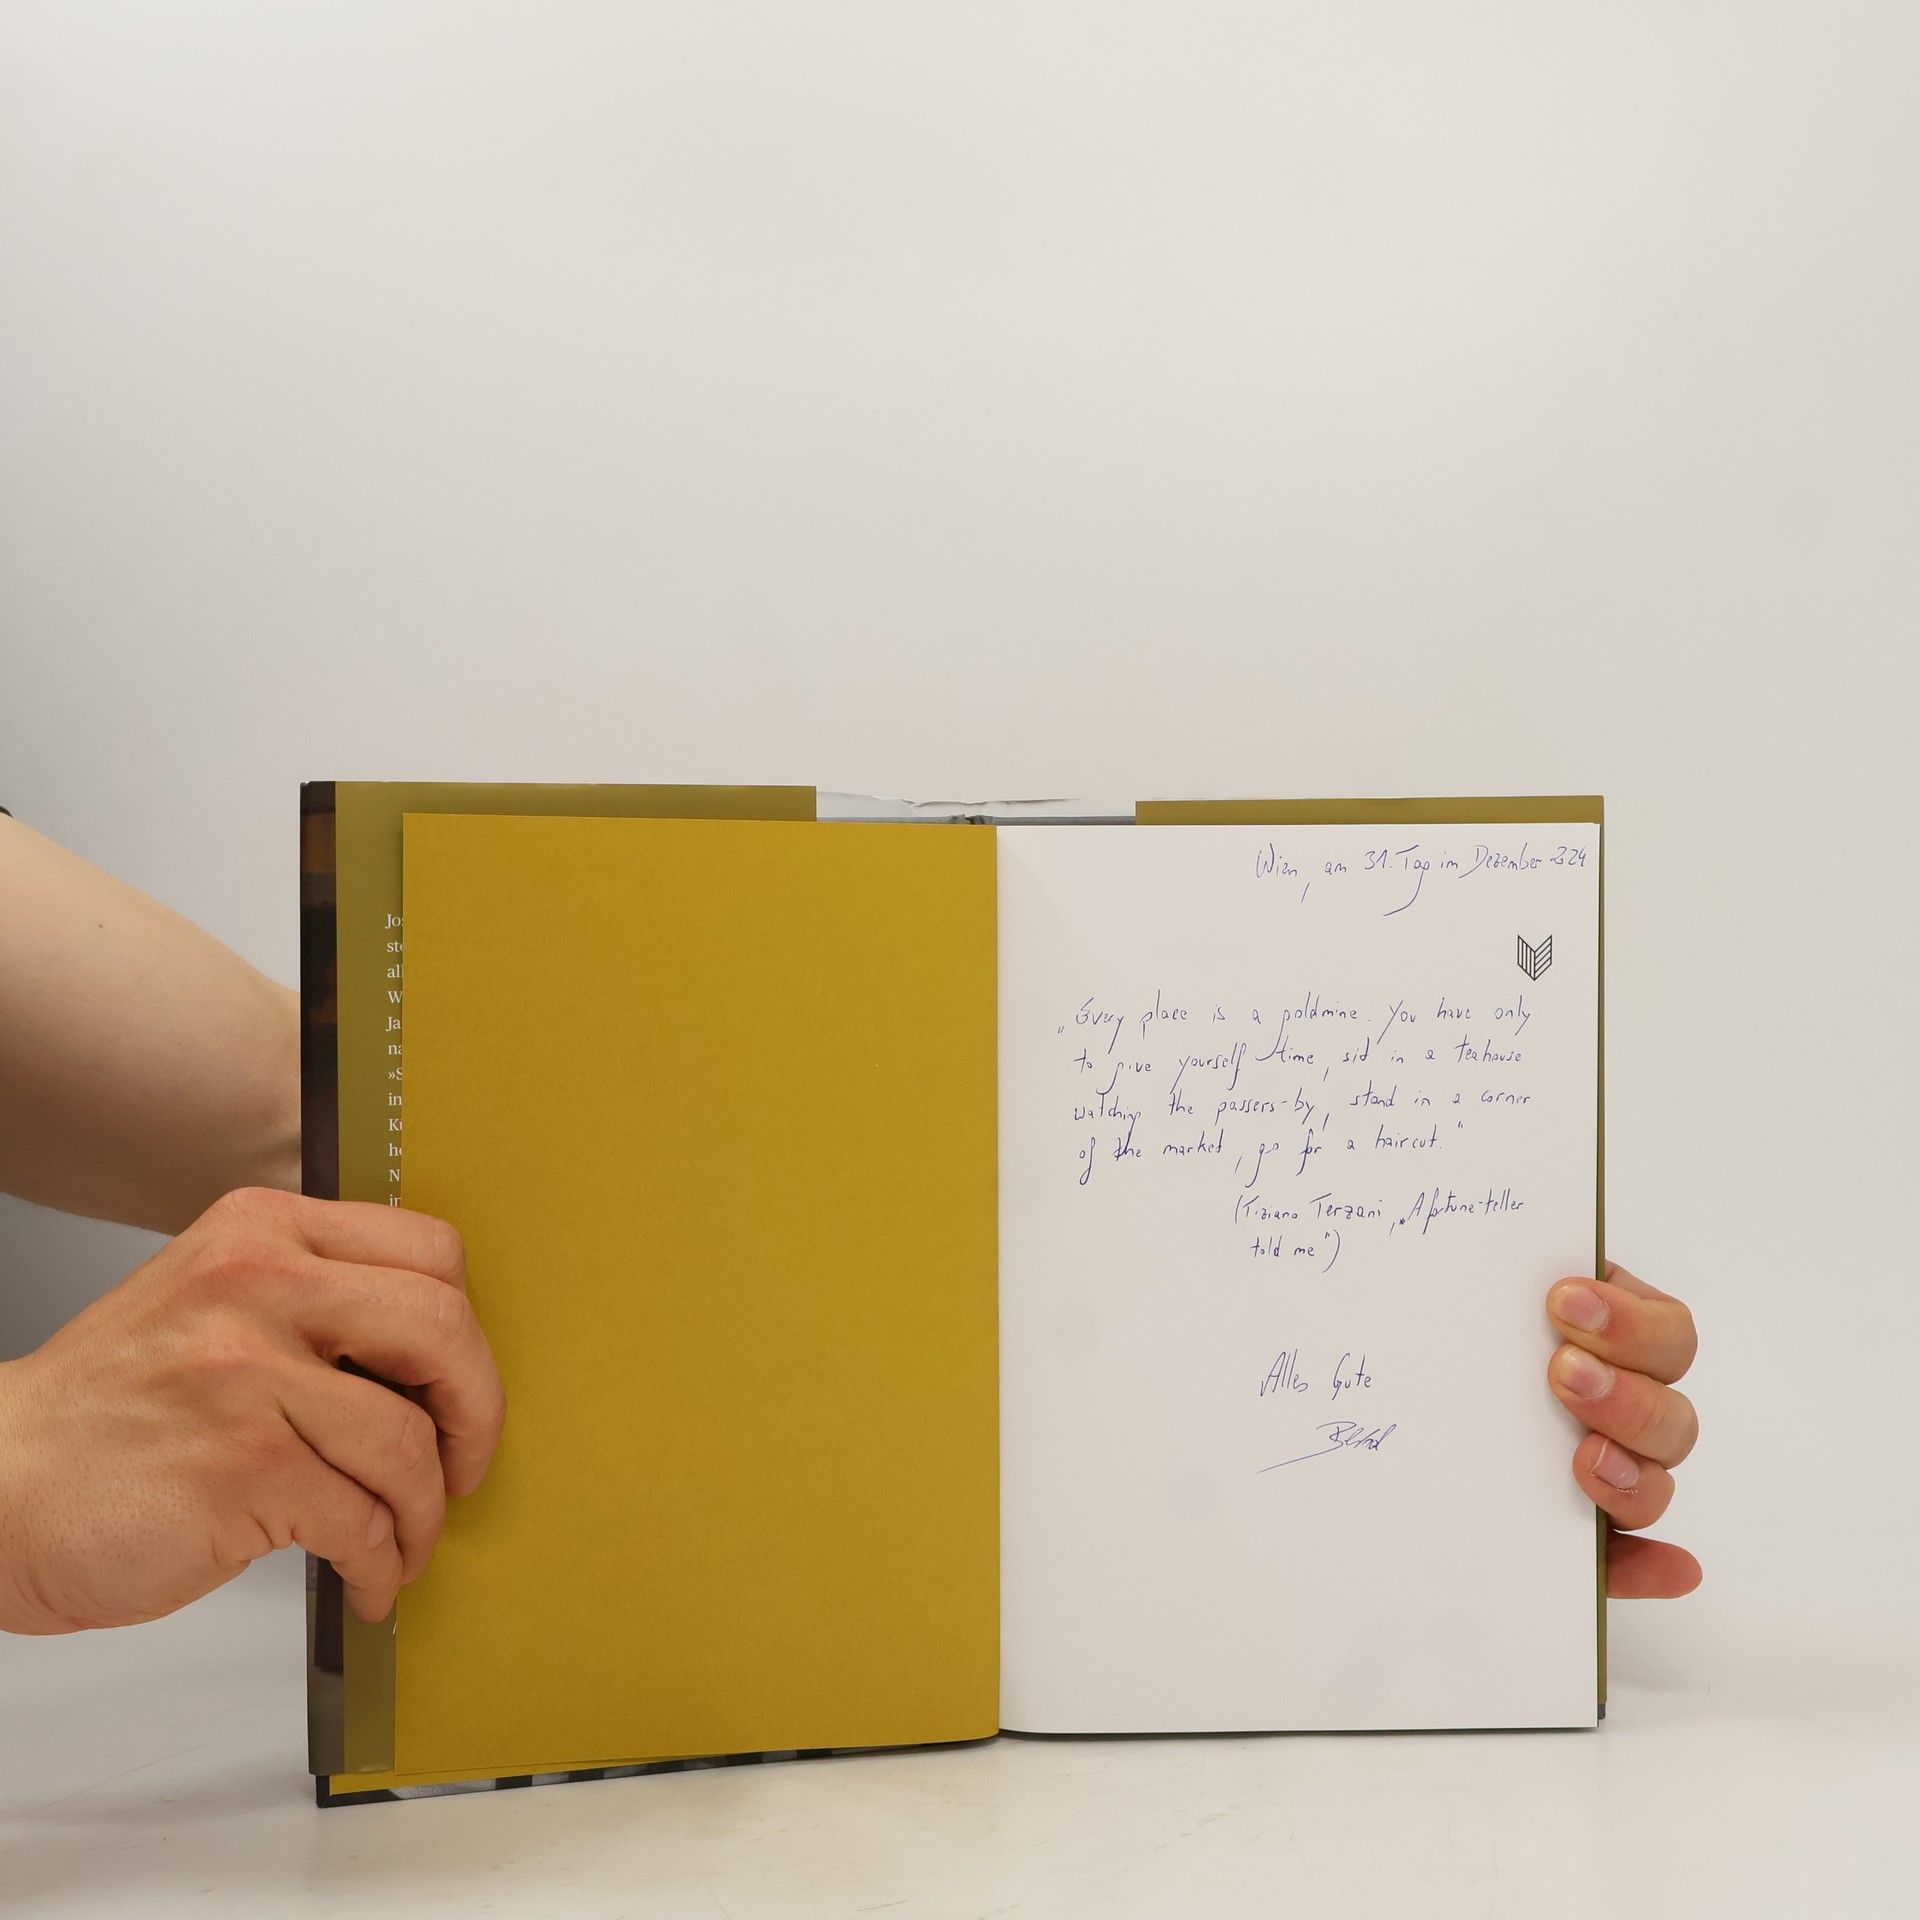 Jo
ste
all
W
Ja
na
»S
in
Kü
he
N
in
Wien, am 31. Tag im Dezember 2024
„Every place is a goldmine. You have only
to give yourself time, sit in a teahouse
watching the passers-by, stand in a corner
of the market, go for a haircut."
(Tiziano Terzani, „A fortune-teller
told me")
Alles Gute